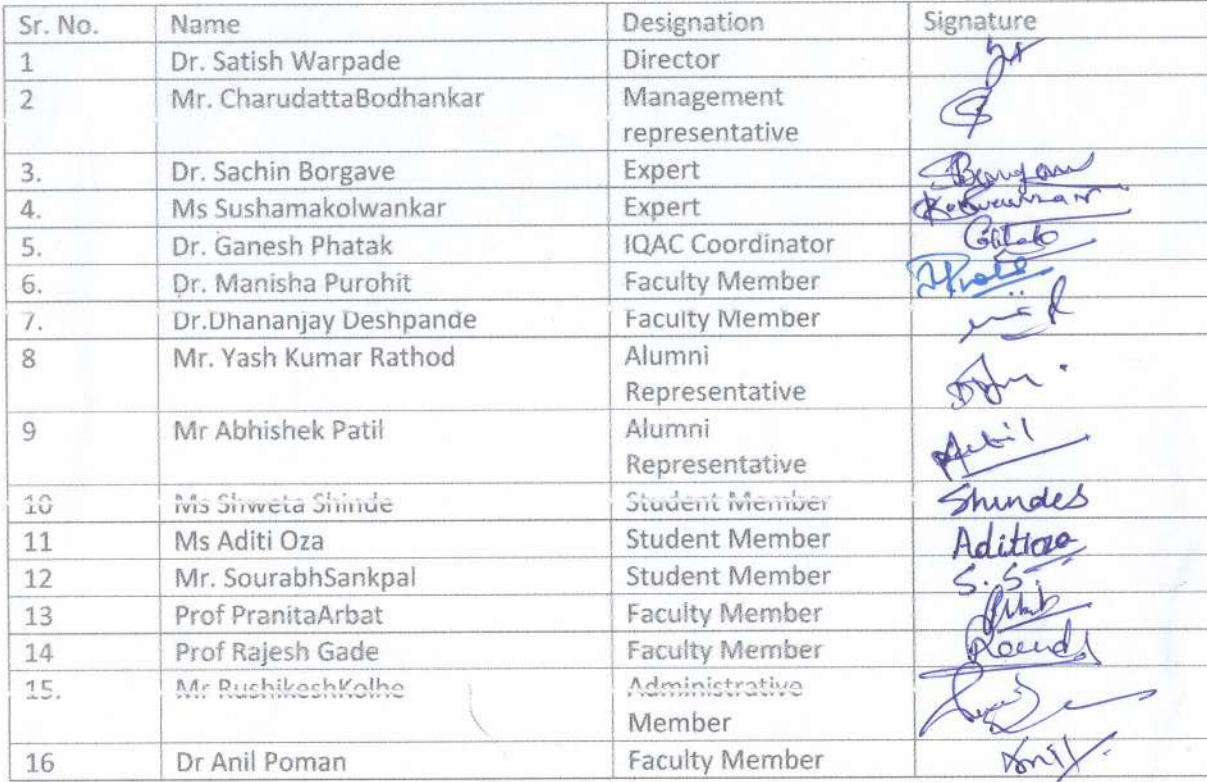 Sr. No. Name Designation Signature
1 Dr. Satish Warpade Director
2 Mr. CharudattaBodhankar Management
representative
3. Dr. Sachin Borgave Expert
4. Ms SushamaKolwankar Expert
5. Dr. Ganesh Phatak IQAC Coordinator
6. Dr. Manisha Purohit Faculty Member
7. Dr.Dhananjay Deshpande Faculty Member
8 Mr. Yash Kumar Rathod Alumni
Representative
9 Mr Abhishek Patil Alumni
Representative
10 Ms Shweta Shinde Student Member Shindes
11 Ms Aditi Oza Student Member Aditioza
12 Mr. SourabhSankpal Student Member S.S.
13 Prof PranitaArbat Faculty Member
14 Prof Rajesh Gade Faculty Member
15. Mr RushikeshKolhe Administrative
Member
16 Dr Anil Poman Faculty Member